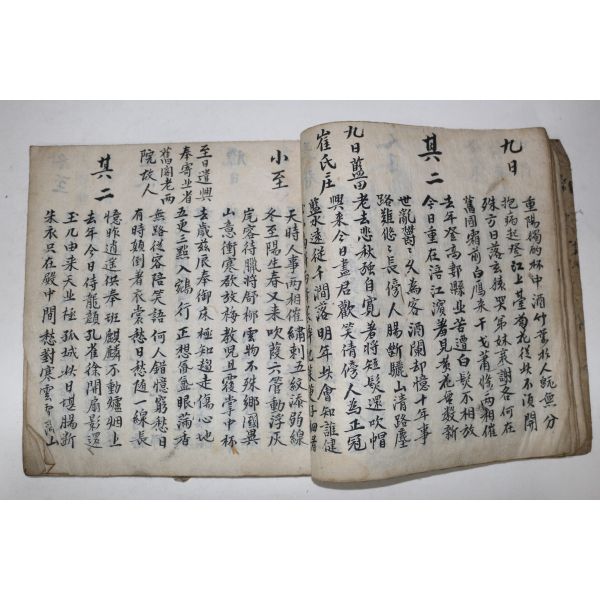 九日
重陽獨酌杯中酒竹葉於人既無分
抱病起登江上臺菊花從此不須開
殊方日落玄猿哭弟妹衰謝各何在
舊國霜前白鴈来干戈蕭條兩相催
其二
去年登高郪縣北苦遭白髮不相放
今日重在涪江濱羞見黃花無數新
世亂鬱〻久為客酒闌却憶十年事
路難悠〻長傍人腸斷驪山清路塵
九日藍田
崔氏庄
老去悲秋強自寬羞將短髮還吹帽
興来今日盡君歡笑倩傍人為正冠
藍水遠從千澗落明年此會知誰健
小至
天時人事兩相催繡刺五紋添弱線
冬至陽生春又来吹葭六管動浮灰
岸容待臘將舒柳雲物不殊鄉國異
山意衝寒欲放梅教兒且覆掌中杯
至日遣興
奉寄北省
舊閣老兩
院故人
去歲茲辰奉御床極知趨走傷心地
五更三點入鵷行正想氤氳眼滿香
無路從容陪笑語何人錯憶窮愁日
有時顛倒著衣裳愁日愁随一線長
其二
憶昨逍遙供奉班麒麟不動爐烟上
去年今日侍龍顔孔雀徐開扇影還
玉几由来天北極孤城此日堪腸斷
朱衣只在殿中間愁對寒雲雪滿山